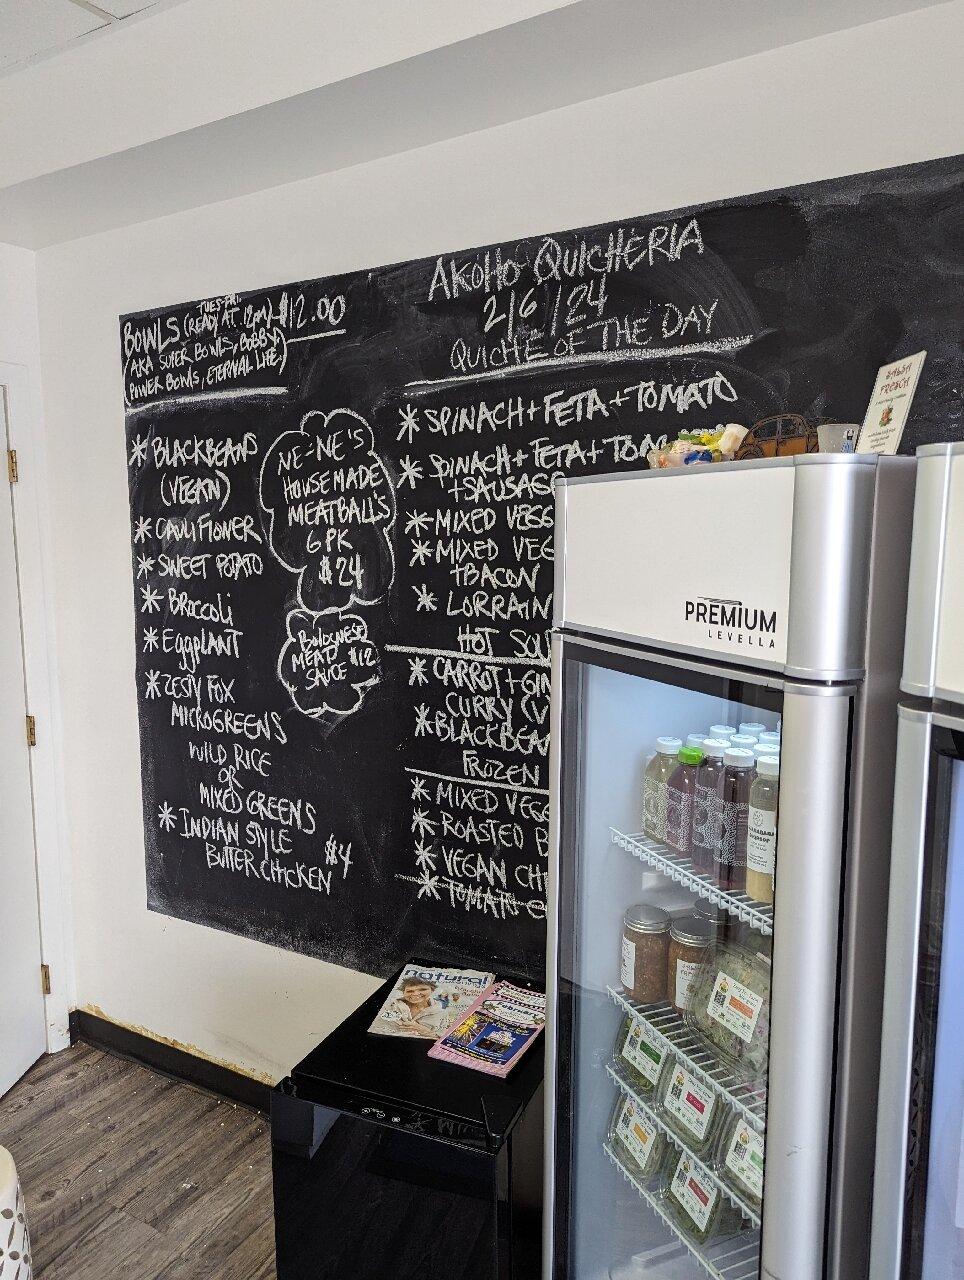 TUES-FRI.
BOWLS (READY AT 12PM) $12.00
(AKA SUPER BOWLS, BOBBY,
POWER BOWLS, ETERNAL LIFE)
* BLACKBEANS
(VEGAN)
* CAULIFLOWER
* SWEET POTATO
* BROCCOLI
* EGGPLANT
* ZESTY FOX
MICROGREENS
WILD RICE
OR
MIXED GREENS
* INDIAN STYLE $4
BUTTER CHICKEN
NE-NE'S
HOUSEMADE
MEATBALL'S
6 PK
$24
BOLOGNESE
MEAT
SAUCE $12
AKOHO QUICHERIA
2/6/24
QUICHE OF THE DAY
* SPINACH + FETA + TOMATO
* SPINACH + FETA + TOM
+ SAUSAG
* MIXED VEGG
* MIXED VEG
+BACON
* LORRAIN
HOT SOU
* CARROT + GIN
CURRY (V
* BLACKBEAN
FROZEN
* MIXED VEG
* ROASTED
* VEGAN CH
* TOMATO
SALSA
FRESCA
PREMIUM
LEVELLA
natural